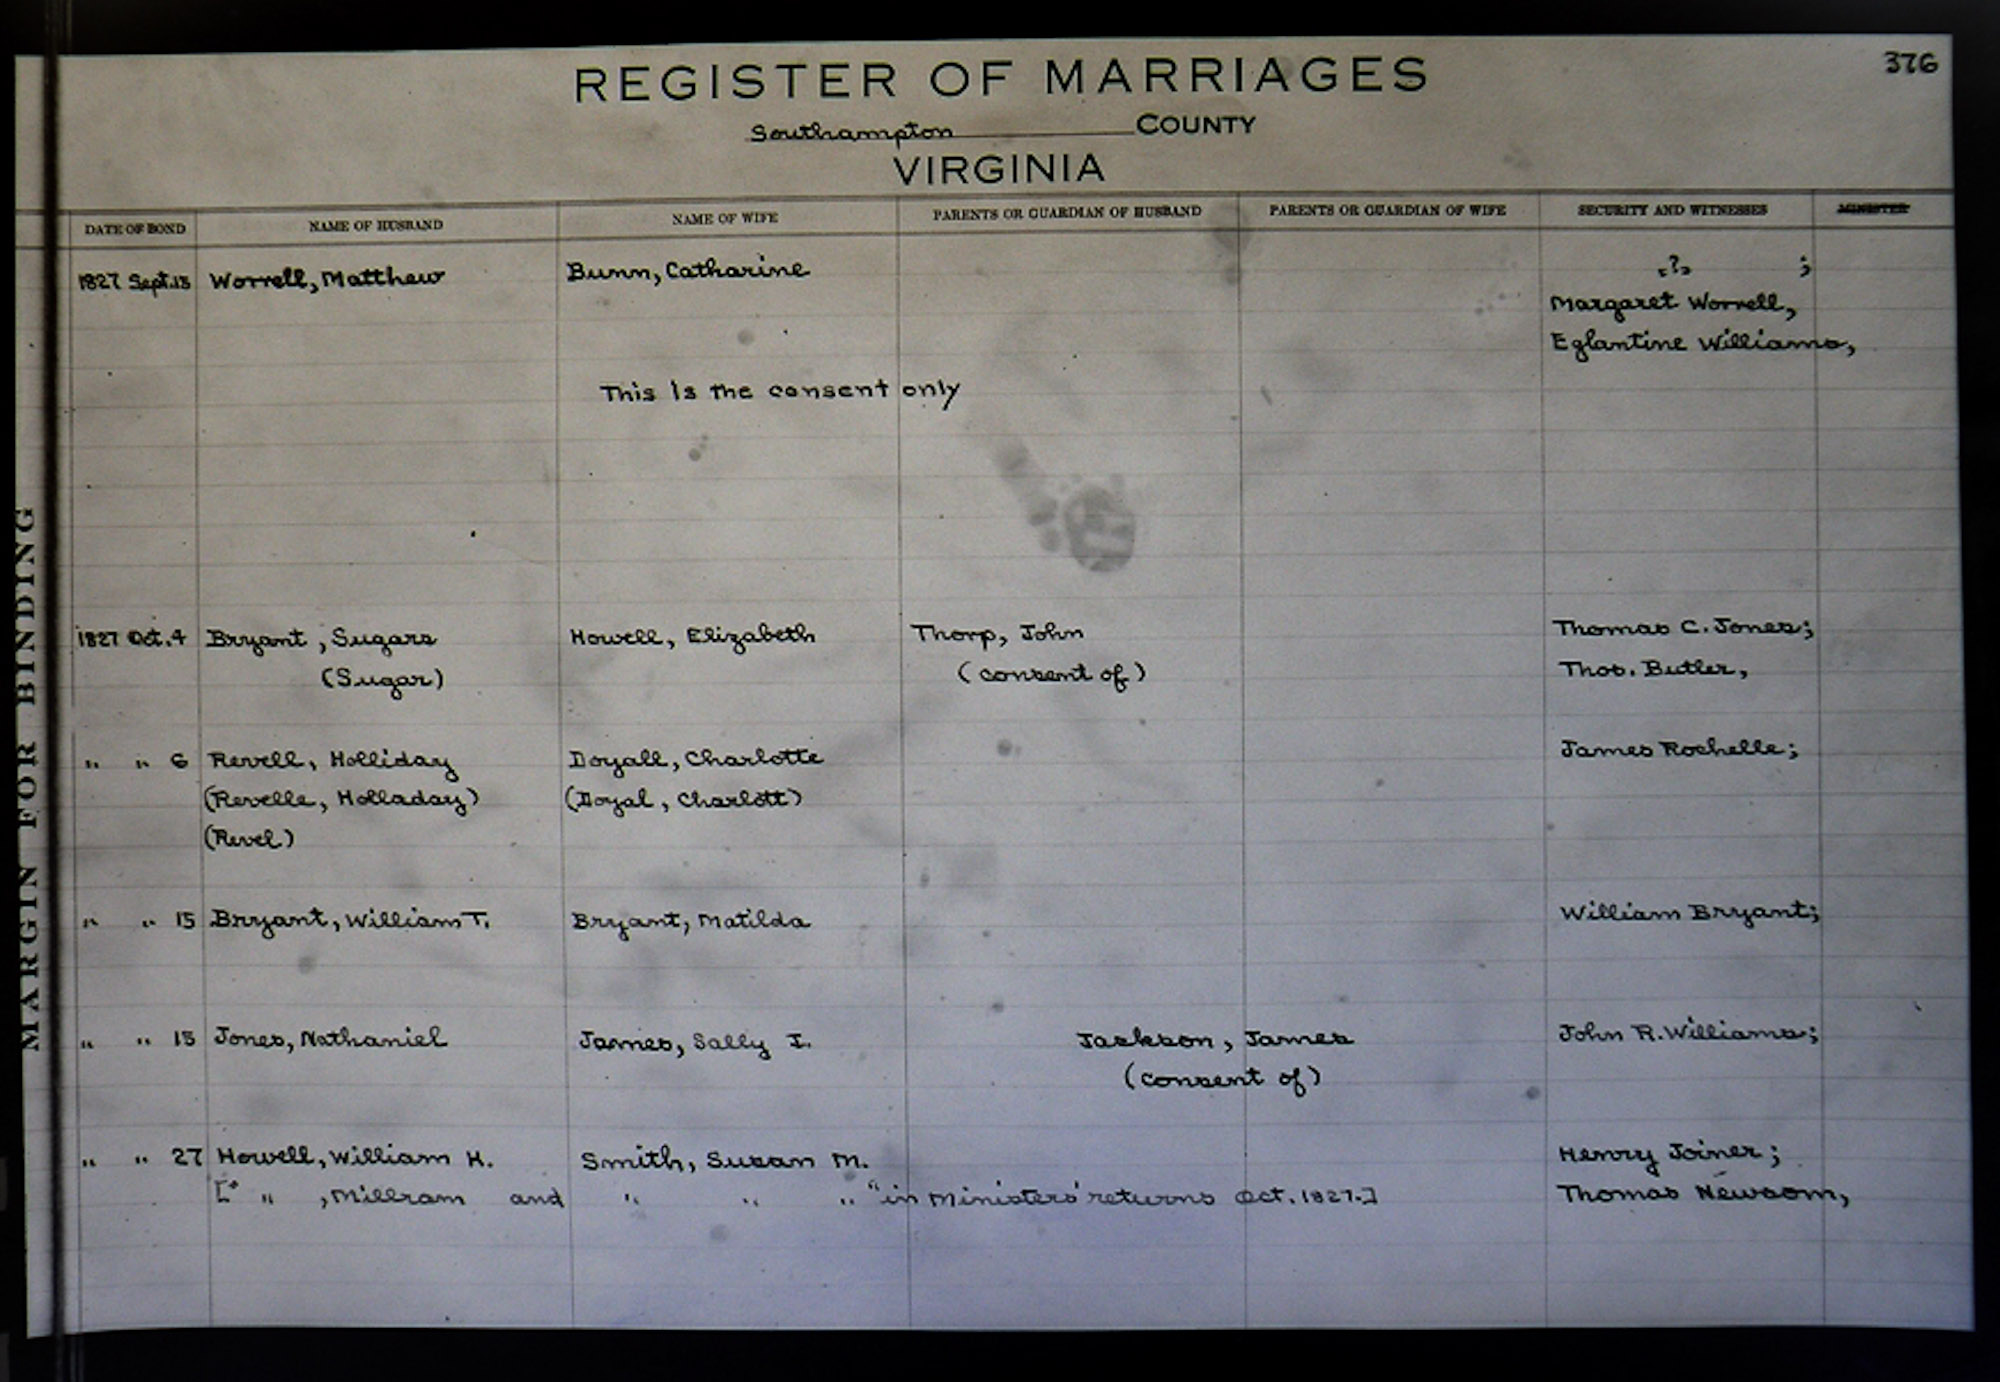 376
REGISTER OF MARRIAGES
Southampton COUNTY
VIRGINIA
DATE OF BOND NAME OF HUSBAND NAME OF WIFE PARENTS OR GUARDIAN OF HUSBAND PARENTS OR GUARDIAN OF WIFE SECURITY AND WITNESSES MINISTER
1827 Sept. 13 Worrell, Matthew Bunn, Catharine ‹?› ;
Margaret Worrell,
Eglantine Williams,
This is the consent only
1827 Oct. 4 Bryant, Sugars Howell, Elizabeth Thorp, John Thomas C. Jones;
(Sugar) (consent of) Thos. Butler,
" " 6 Revell, Holliday Doyall, Charlotte James Rochelle;
(Revelle, Holladay) (Doyal, Charlott)
(Revel)
" " 15 Bryant, William T. Bryant, Matilda William Bryant;
" " 15 Jones, Nathaniel James, Sally I. Jackson, James John R. Williams;
(consent of)
" " 27 Howell, William H. Smith, Susan M. Henry Joiner;
[" " , Millram and " " " "in Ministers' returns Oct. 1827.] Thomas Newsom,
MARGIN FOR BINDING